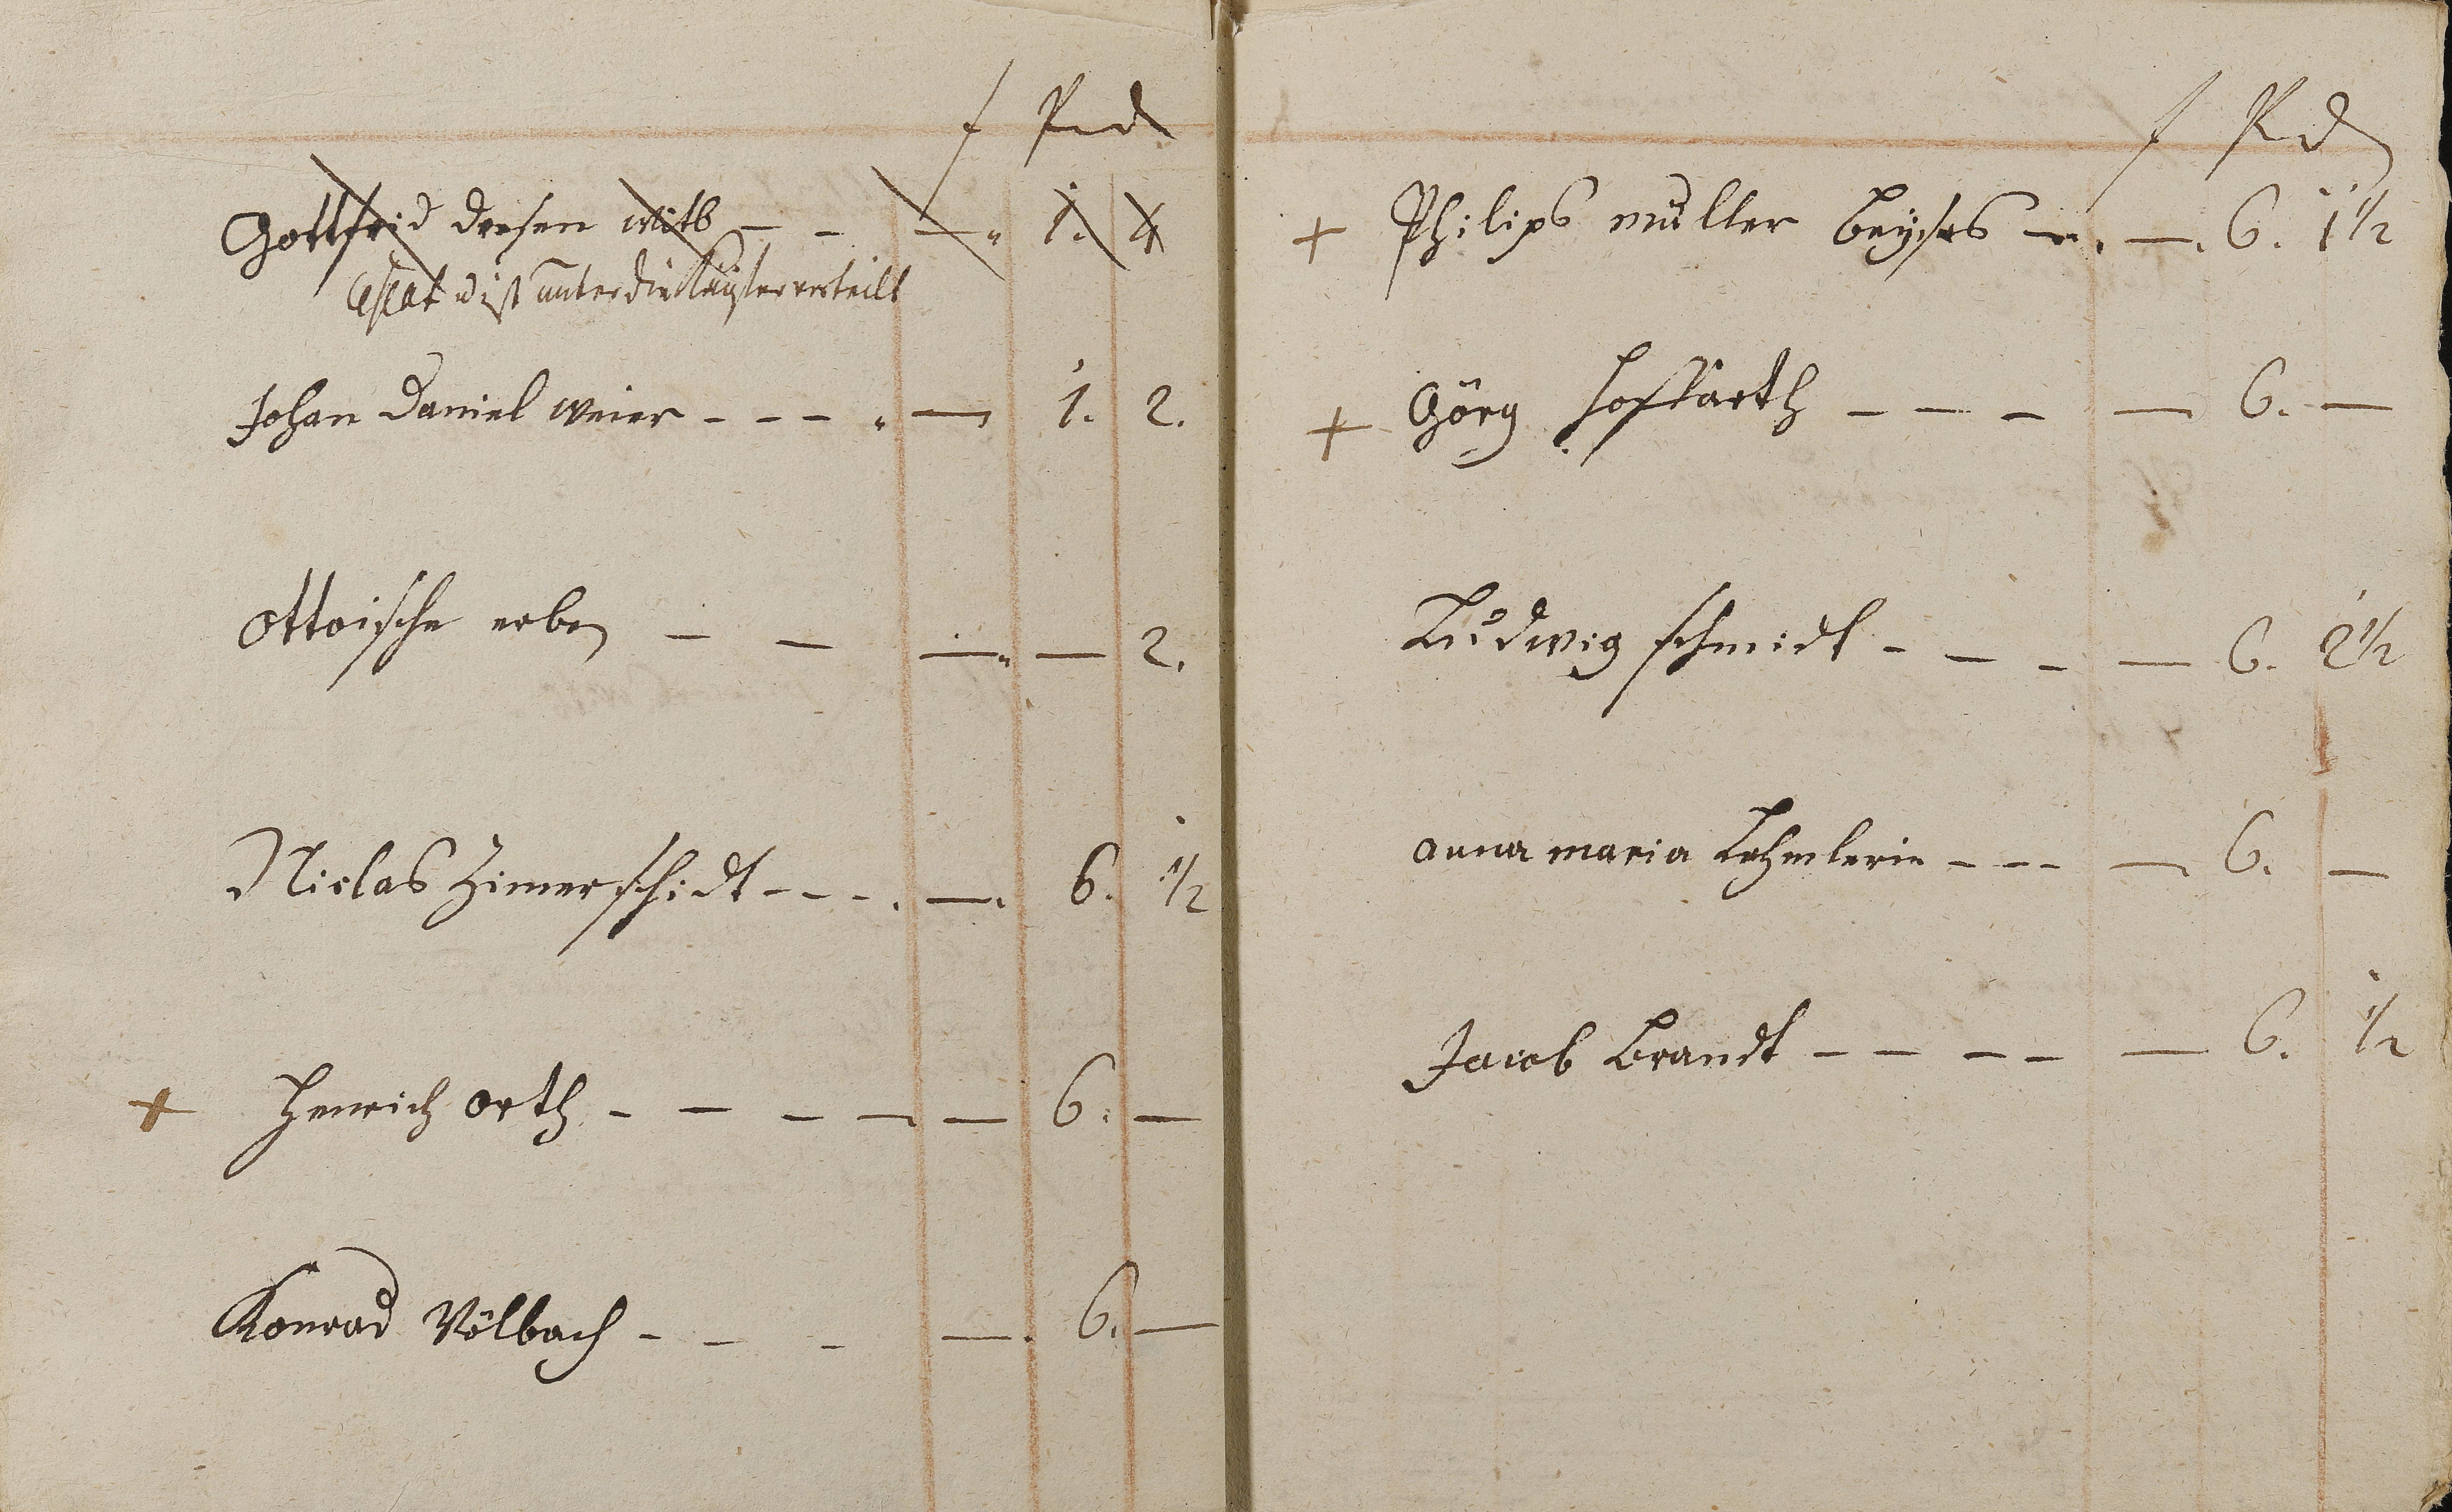 f Rr d
Gottfrid dresen witb - - - " 1. 4
ist unter die Käufer verteilt
Johan Daniel weier - - - " — 1. 2.
ottoische erben - - — " — 2.
Niclas Zimerschidt - - - . —. 6. 1/2
+ Henrich orth - - - - — 6. —
Konrad Völbach - - - —. 6. —
f R d
+ Philips müller —. 6. 1 1/2
+ Görg Hoffarth - - - — 6. —
Ludwig schmidt - - - — 6. 2 1/2
anna maria - - - — 6. —
Jacob Brandt - - - - — 6. 1/2